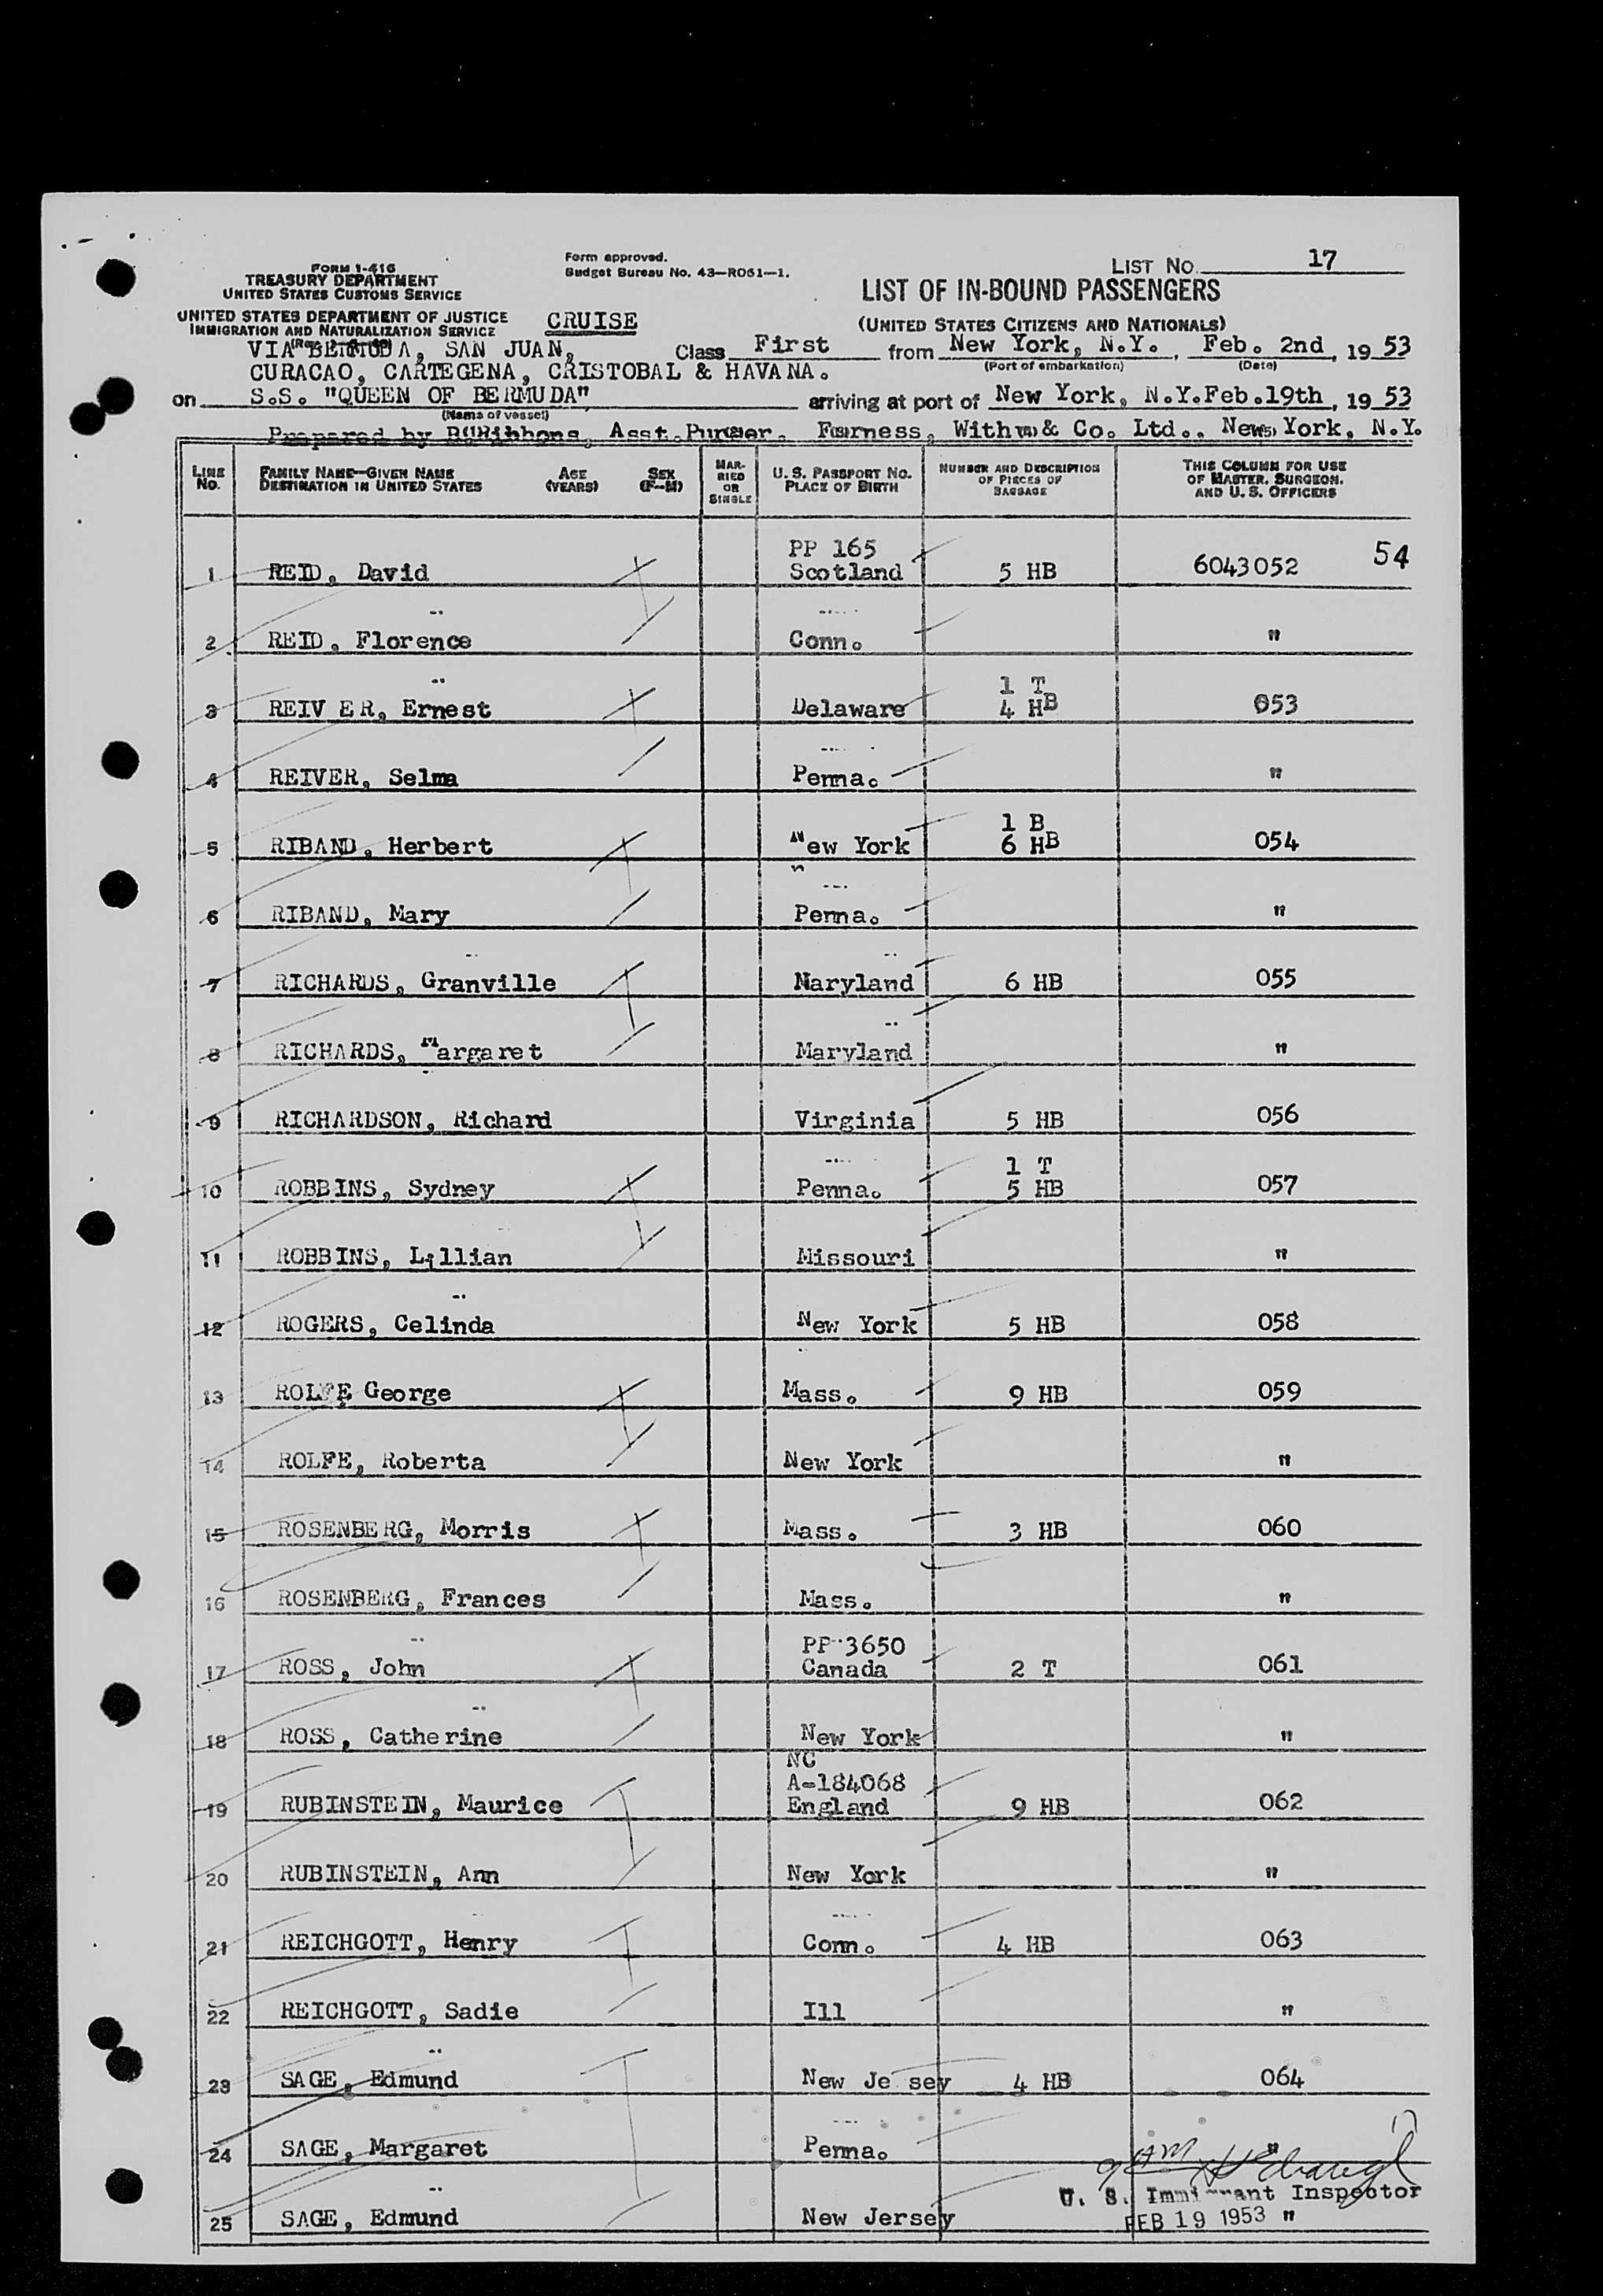 FORM I-416
TREASURY DEPARTMENT
UNITED STATES CUSTOMS SERVICE
UNITED STATES DEPARTMENT OF JUSTICE
IMMIGRATION AND NATURALIZATION SERVICE
Form approved.
Budget Bureau No. 43—R061—1.
LIST NO. 17
LIST OF IN-BOUND PASSENGERS
(UNITED STATES CITIZENS AND NATIONALS)
CRUISE
VIA BERMUDA, SAN JUAN, Class First from New York, N.Y., Feb. 2nd, 19 53
(Port of embarkation) (Date)
CURACAO, CARTEGENA, CRISTOBAL & HAVANA.
on S.S. "QUEEN OF BERMUDA" arriving at port of New York, N.Y. Feb. 19th, 19 53
(Name of vessel)
Prepared by Asst. Purser. Furness, Withy & Co. Ltd., New York, N.Y.
LINE NO. FAMILY NAME—GIVEN NAME DESTINATION IN UNITED STATES AGE (YEARS) SEX (F—M) MARRIED OR SINGLE U. S. PASSPORT NO. PLACE OF BIRTH NUMBER AND DESCRIPTION OF PIECES OF BAGGAGE THIS COLUMN FOR USE OF MASTER, SURGEON, AND U. S. OFFICERS
PP 165 54
1 REID, David Scotland 5 HB 6043052
2 REID, Florence Conn. "
1 T
3 REIV ER, Ernest Delaware 4 HB 053
4 REIVER, Selma Penna. "
1 B
5 RIBAND, Herbert New York 6 HB 054
6 RIBAND, Mary Penna. "
7 RICHARDS, Granville Naryland 6 HB 055
8 RICHARDS, Margaret Maryland "
9 RICHARDSON, Richard Virginia 5 HB 056
1 T
10 ROBBINS, Sydney Penna. 5 HB 057
11 ROBBINS, Lillian Missouri "
12 ROGERS, Celinda New York 5 HB 058
13 ROLFE, George Mass. 9 HB 059
14 ROLFE, Roberta New York "
15 ROSENBERG, Morris Mass. 3 HB 060
16 ROSENBERG, Frances Mass. "
PP 3650
17 ROSS, John Canada 2 T 061
18 ROSS, Catherine New York "
NC
A-184068
19 RUBINSTEIN, Maurice England 9 HB 062
20 RUBINSTEIN, Ann New York "
21 REICHGOTT, Henry Conn. 4 HB 063
22 REICHGOTT, Sadie Ill "
23 SAGE, Edmund New Je sey 4 HB 064
24 SAGE, Margaret Penna. "
U. S. Immigrant Inspector
25 SAGE, Edmund New Jersey FEB 19 1953 "